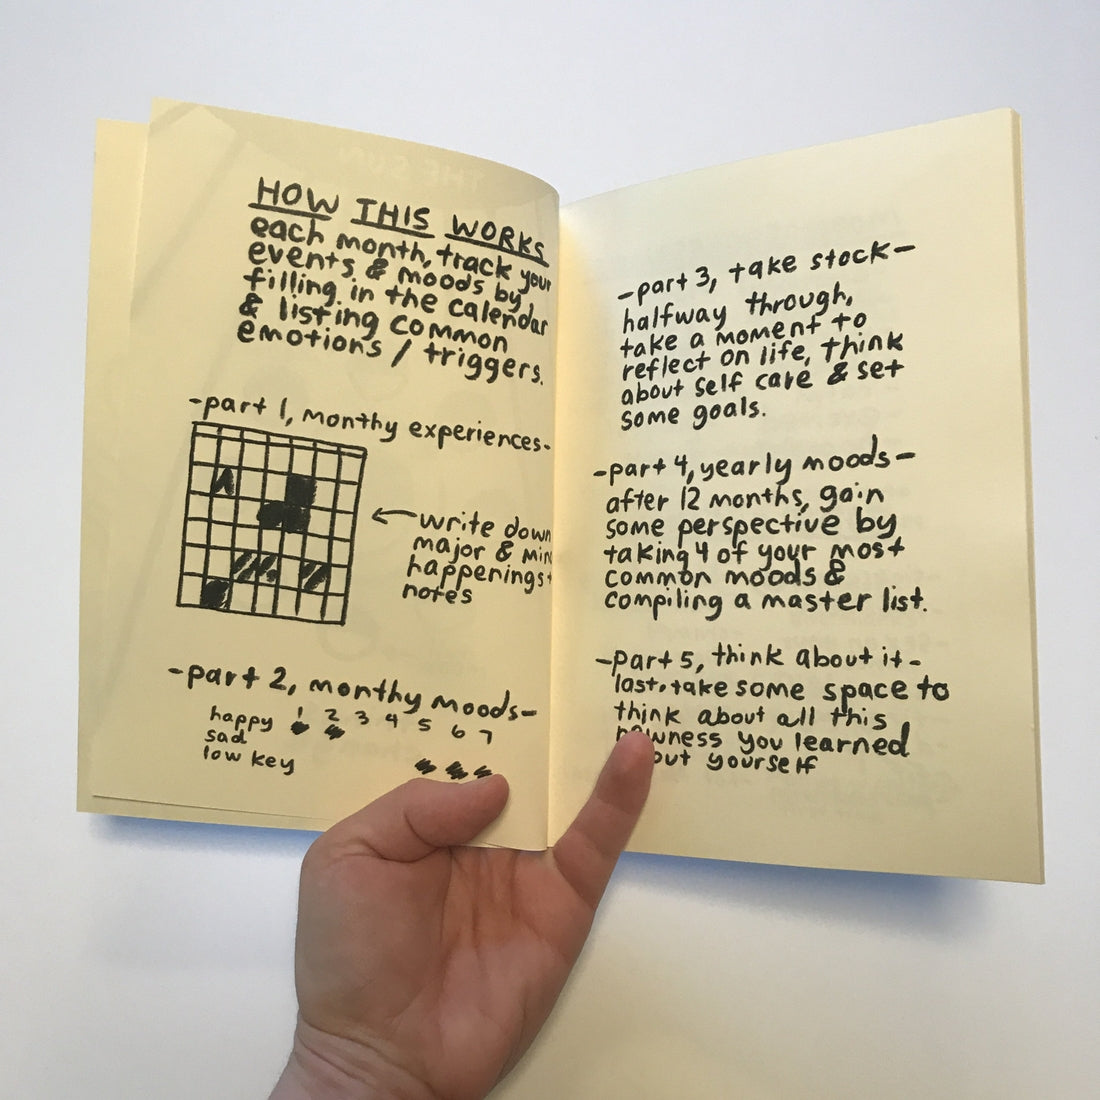 HOW THIS WORKS
each month, track your
events & moods by
filling in the calendar
& listing common
emotions / triggers.
-part 1, monthy experiences-
write down
major &
happenings +
notes
-part 2, monthy moods-
happy 1 2 3 4 5 6 7
sad
low key
-part 3, take stock-
halfway through,
take a moment to
reflect on life, think
about self care & set
some goals.
-part 4, yearly moods-
after 12 months, gain
some perspective by
taking 4 of your most
common moods &
compiling a master list.
-part 5, think about it-
last, take some space to
think about all this
newness you learned
yourself